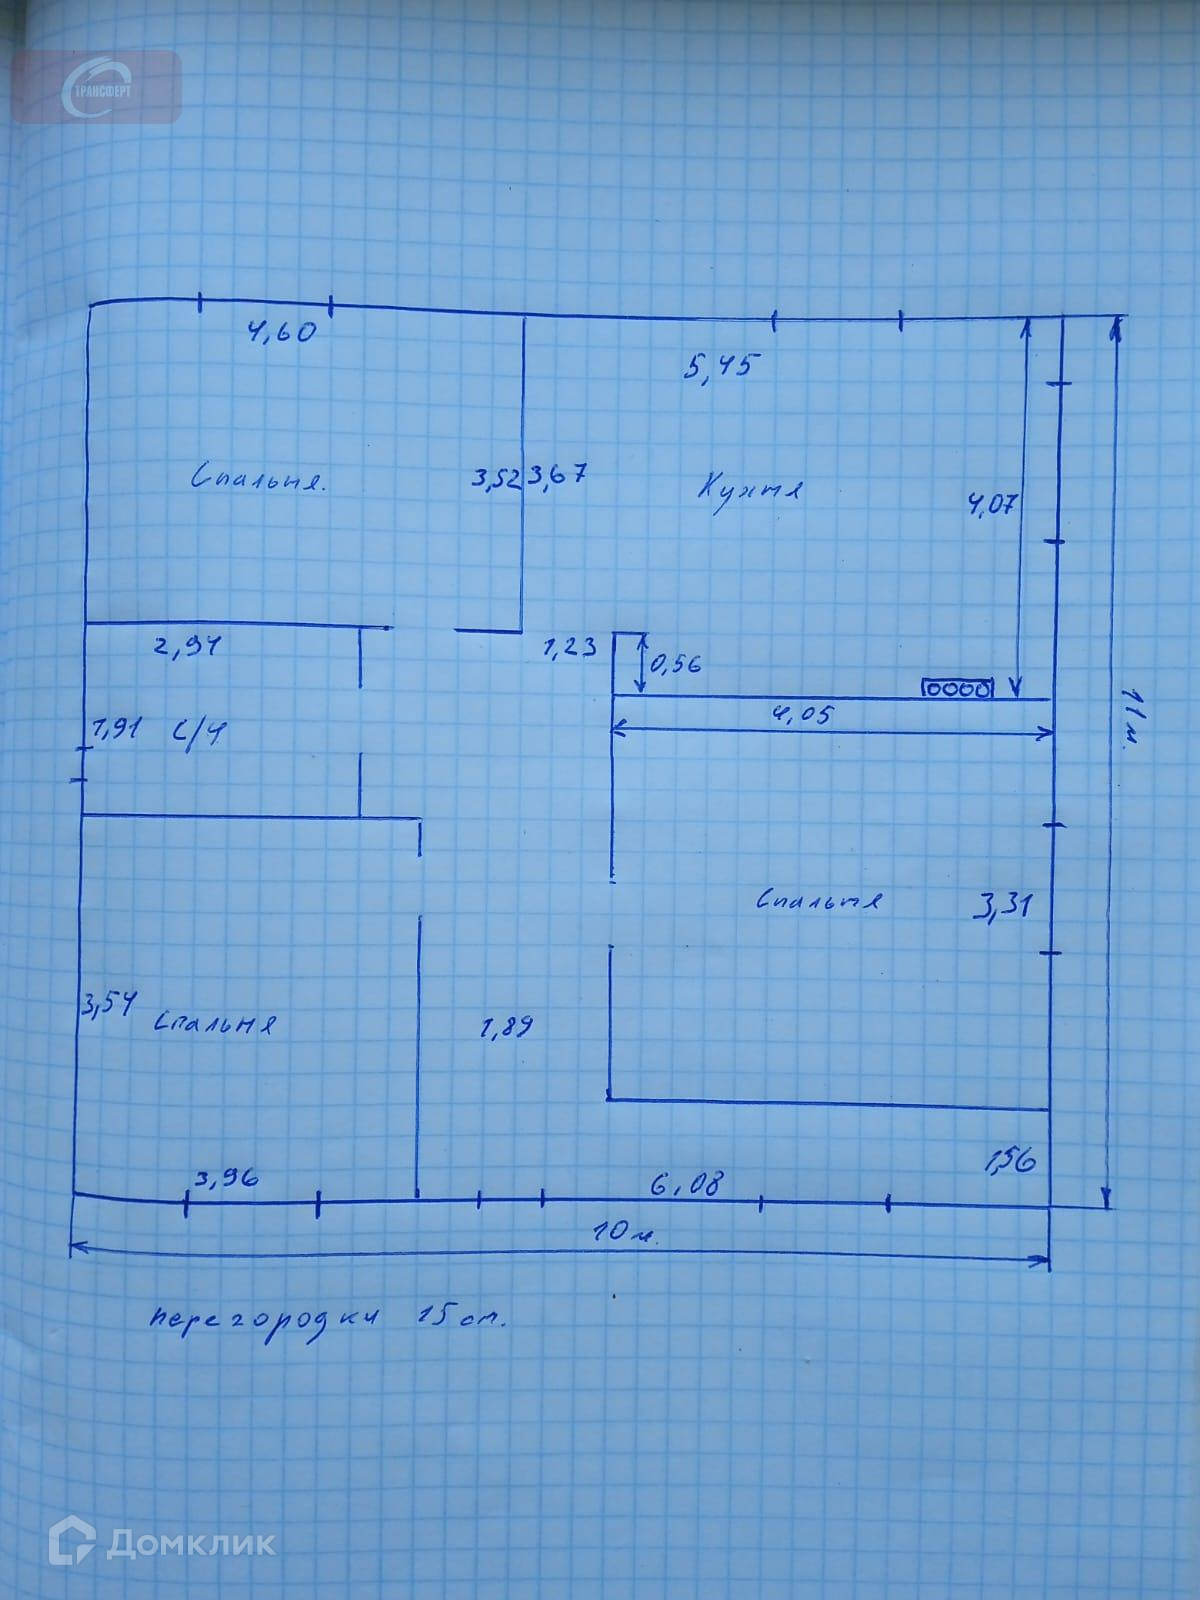 ТРАНСФЕРТ
4,60
5,45
Спальня.
3,52
3,67
Кухня
4,07
2,94
1,23
0,56
1,91
С/У
4,05
11 м.
Спальня
3,31
3,54
Спальня
1,89
3,96
6,08
1,56
10 м.
перегородки 15 см.
Домклик